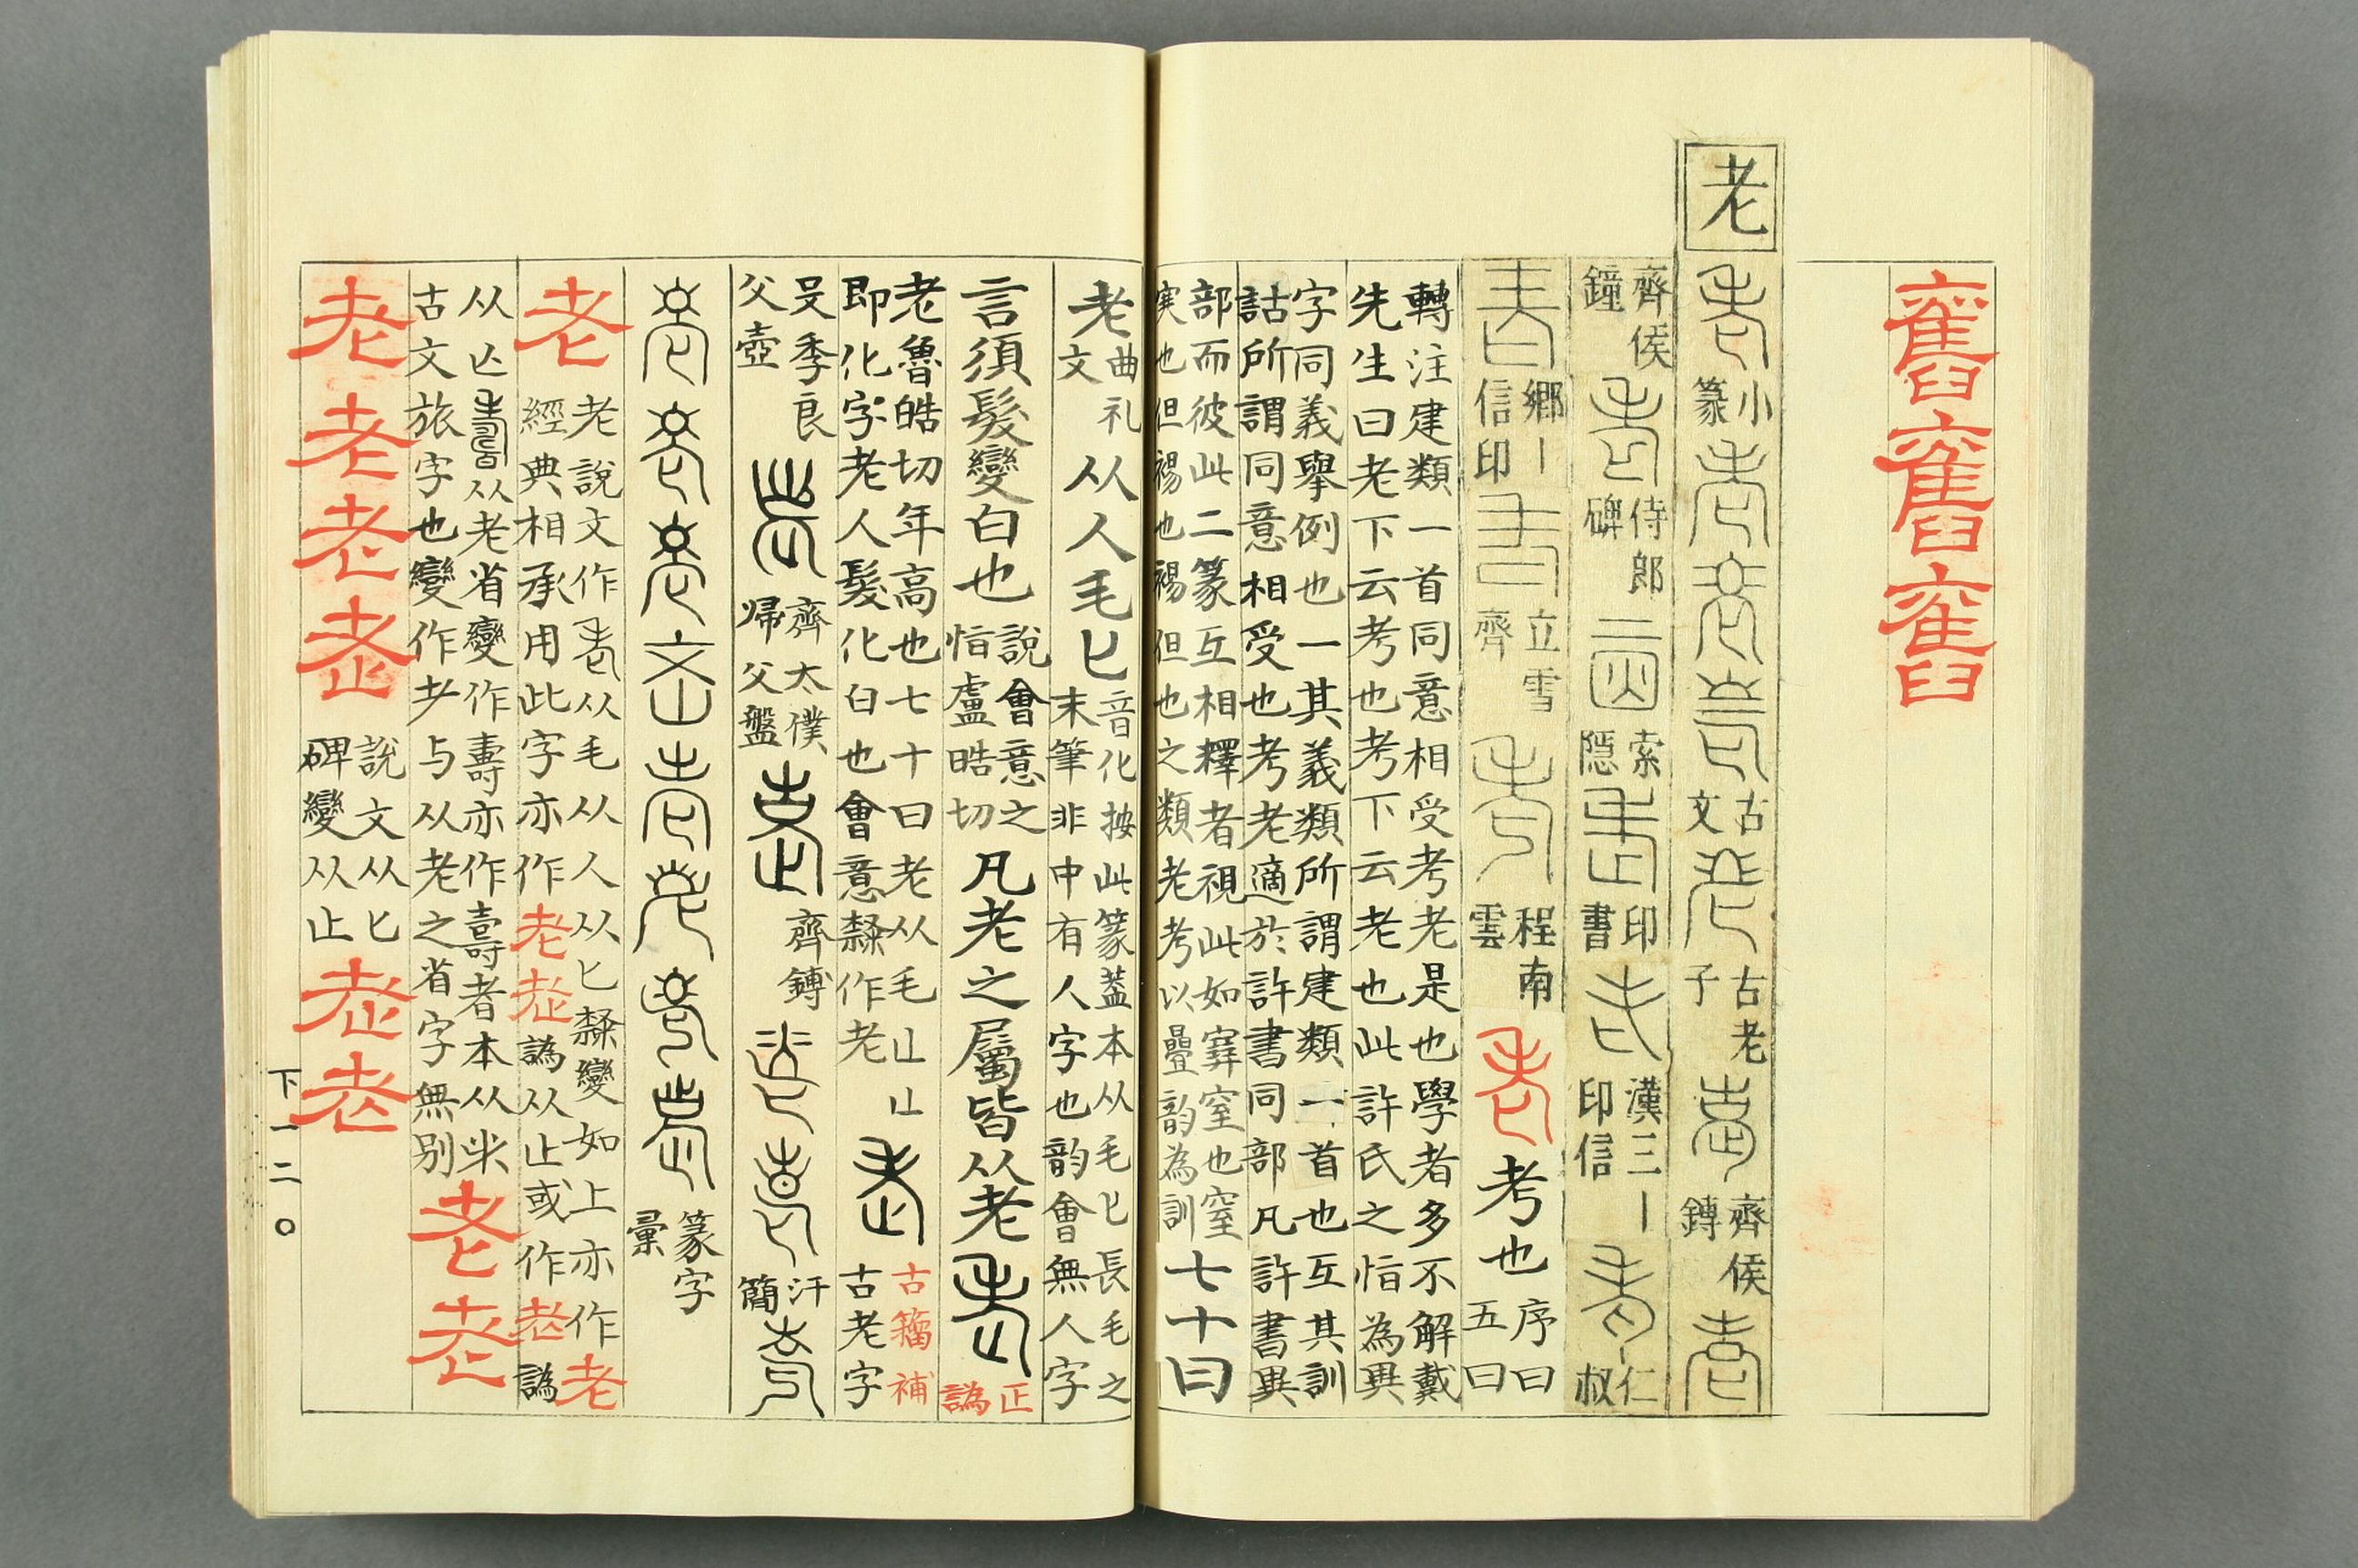 舊舊舊
老
小篆
古文
古老子
齊侯鎛
齊侯鐘
侍郎碑
索隱
印書
漢三丨印信
仁叔
鄉丨信印
立雪齊
程南雲
老考也序曰五曰
轉注建類一首同意相受考老是也學者多不解戴
先生曰老下云考也考下云老也此許氏之恉為異
字同義舉例也一其義類所謂建類一首也互其訓
詁所謂同意相受也考老適於許書同部凡許書異
部而彼此二篆互相釋者視此如窫窒也窒
寞也但裼也裼但也之類老考以疊韵為訓七十曰
老曲礼文从人毛匕音化按此篆蓋本从毛匕長毛之
末筆非中有人字也韵會無人字
言須髮變白也說會意之恉盧晧切凡老之屬皆从老
正譌
老魯皓切年高也七十曰老从毛止止
即化字老人髮化白也會意隸作老
古籀補
古老字
㕦季良父壺
齊太僕帰父盤
齊鎛
汗簡
篆字彙
老老說文作从毛从人从匕隸變如上亦作老
經典相承用此字亦作老老譌从止或作老譌
从亾从老省變作壽亦作壽者本从
古文旅字也變作耂与从老之省字無別
老老
老老老老說文从匕碑變从止老老
下一二〇